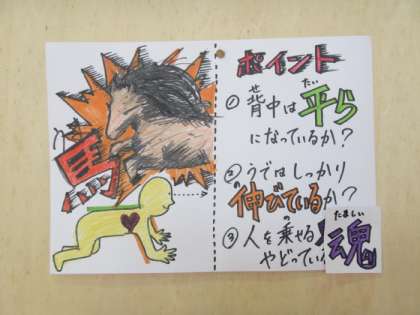 うま
馬
ポイント
① 背中は平ら
せ
たい
になっているか?
② うではしっかり
の
伸びているか?
の
③ 人を乗せる!
たましい
魂
やどってい